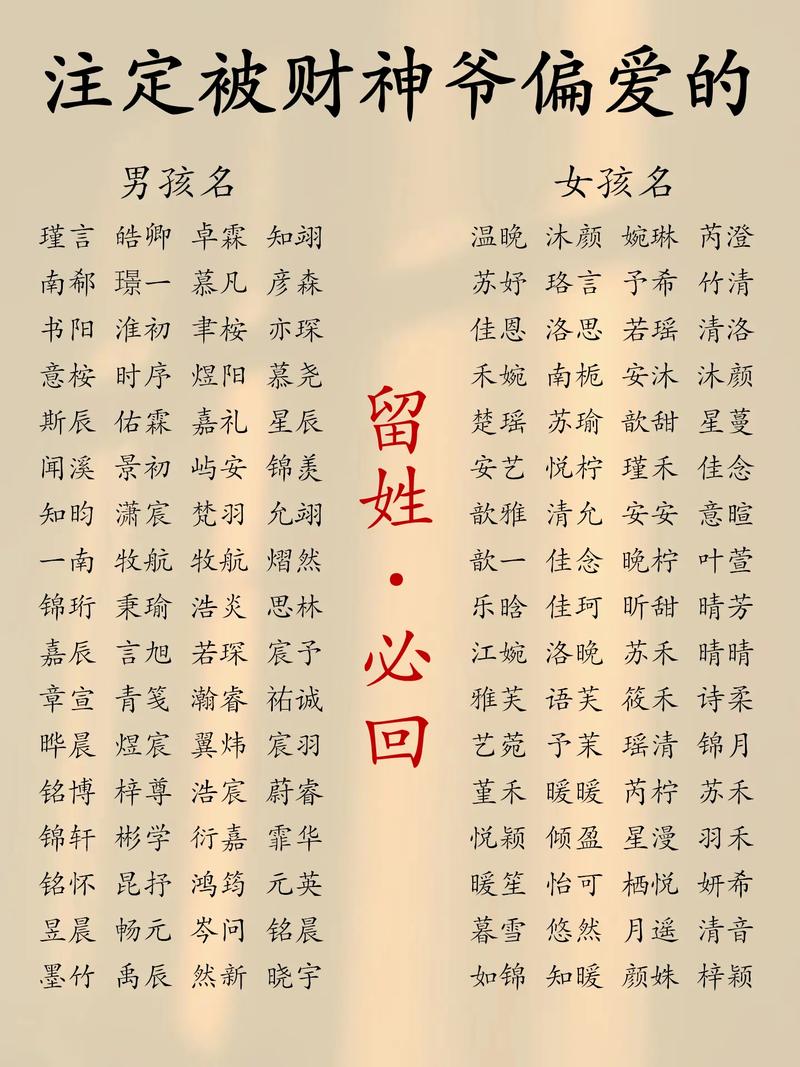 注定被财神爷偏爱的
男孩名
瑾言 皓卿 卓霖 知翊
南郗 璟一 慕凡 彦森
书阳 淮初 聿桉 亦琛
意桉 时序 煜阳 慕尧
斯辰 佑霖 嘉礼 星辰
闻溪 景初 屿安 锦羡
知昀 潇宸 梵羽 允翊
一南 牧航 牧航 熠然
锦珩 秉瑜 浩炎 思林
嘉辰 言旭 若琛 宸予
章宣 青笺 瀚睿 祐诚
晔晨 煜宸 翼炜 宸羽
铭博 梓尊 浩宸 蔚睿
锦轩 彬学 衍嘉 霏华
铭怀 昆抒 鸿筠 元英
昱晨 畅元 岑问 铭晨
墨竹 禹辰 然新 晓宇
留姓·必回
女孩名
温晚 沐颜 婉琳 芮澄
苏妤 珞言 予希 竹清
佳恩 洛思 若瑶 清洛
禾婉 南栀 安沐 沐颜
楚瑶 苏瑜 歆甜 星蔓
安艺 悦柠 瑾禾 佳念
歆雅 清允 安安 意暄
歆一 佳念 晚柠 叶萱
乐晗 佳珂 昕甜 晴芳
江婉 洛晚 苏禾 晴晴
雅芙 语芙 筱禾 诗柔
艺菀 予茉 瑶清 锦月
堇禾 暖暖 芮柠 苏禾
悦颖 倾盈 星漫 羽禾
暖笙 怡可 栖悦 妍希
暮雪 悠然 月遥 清音
如锦 知暖 颜姝 梓颖